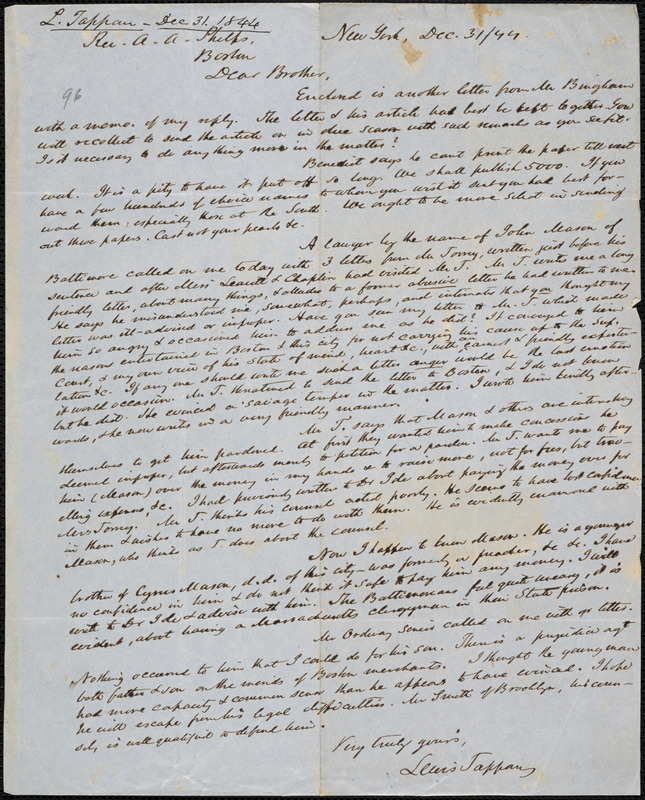 L. Tappan - Dec 31. 1844
Rev. A. A. Phelps,
Boston
New York, Dec. 31/44.
Dear Brother,
96
Enclosed is another letter from Mr Bingham
with a memo. of my reply. The letter & his article had best be kept together. You
will recollect to send the article on in due season with such remarks as you see fit.
Is it necessary to do any thing more in the matter?
Benedict says he cant print the paper till next
week. It is a pity to have it put off so long. We shall publish 5000. If you
have a few hundreds of choice names to whom you wish it sent you had best for-
ward them; especially those at the South. We ought to be more select in sending
out these papers. Cast not your pearls &c.
A lawyer by the name of John Mason of
Baltimore called on me today with 3 letters from Mr Torrey, written just before his
sentence and after Messrs Leavitt & Chaplin had visited Mr T. Mr T. wrote me a long
friendly letter, about many things, & alluded to a former abusive letter he had written to me.
He says he misunderstood me, somewhat, perhaps, and intimates that you thought my
letter was ill-advised or improper. Have you seen my letter to Mr T. which made
him so angry & occasioned him to address me as he did? It conveyed to him
the reasons entertained in Boston & this city for not carrying his cause up to the Sup.
Court, & my own view of his state of mind, heart &c., with an earnest & friendly expostu-
lation &c. If any one should write me such a letter anger would be the last emotion
it would occasion. Mr T. threatened to send the letter to Boston, & I do not know
but he did. He evinced a savage temper in the matter. I wrote him kindly after-
wards, & he now writes in a very friendly manner.
Mr T. says that Mason & others are interesting
themselves to get him pardoned. At first they wanted him to make concession he
deemed improper, but afterwards merely to petition for a pardon. Mr T. wants me to pay
him (Mason) over the money in my hands & to raise more, not for fees, but trav-
elling expenses, &c. I had previously written to Dr Ide about paying the money over for
Mrs Torrey. Mr T. thinks his counsel acted poorly. He seems to have lost confidence
in them & wishes to have no more to do with them. He is evidently enamored with
Mason, who thinks as T. does about the counsel.
Now I happen to know Mason. He is a younger
brother of Cyrus Mason, d.d. of this city - was formerly a preacher, &c &c. I have
no confidence in him & do not think it safe to pay him any money. I will
write to Dr Ide & advise with him. The Baltimoreans feel quite uneasy, it is
evident, about having a Massachusetts clergyman in their State prison.
Mr Ordway senior called on me with yr letter.
Nothing occurred to him that I could do for his son. There is a prejudice agt
both father & son on the minds of Boston merchants. I thought the young man
had more capacity & common sense than he appears to have evinced. I hope
he will escape from his legal difficulties. Mr Smith of Brooklyn, his coun-
sel, is well qualified to defend him.
Very truly yours,
Lewis Tappan